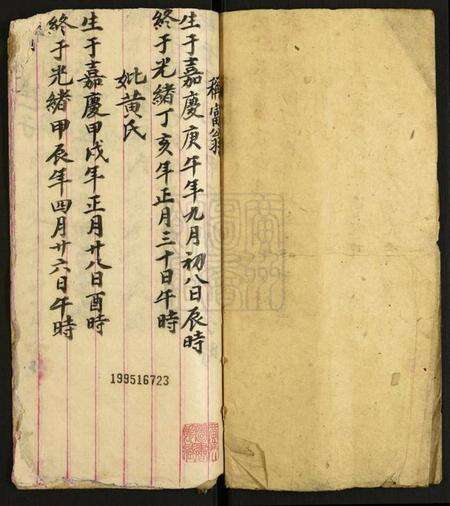 稱富翁
生于嘉慶庚午年九月初八日辰時
終于光緒丁亥年正月三十日午時
妣黃氏
生于嘉慶甲戌年正月廿八日酉時
終于光緒甲辰年四月廿六日午時
199516723